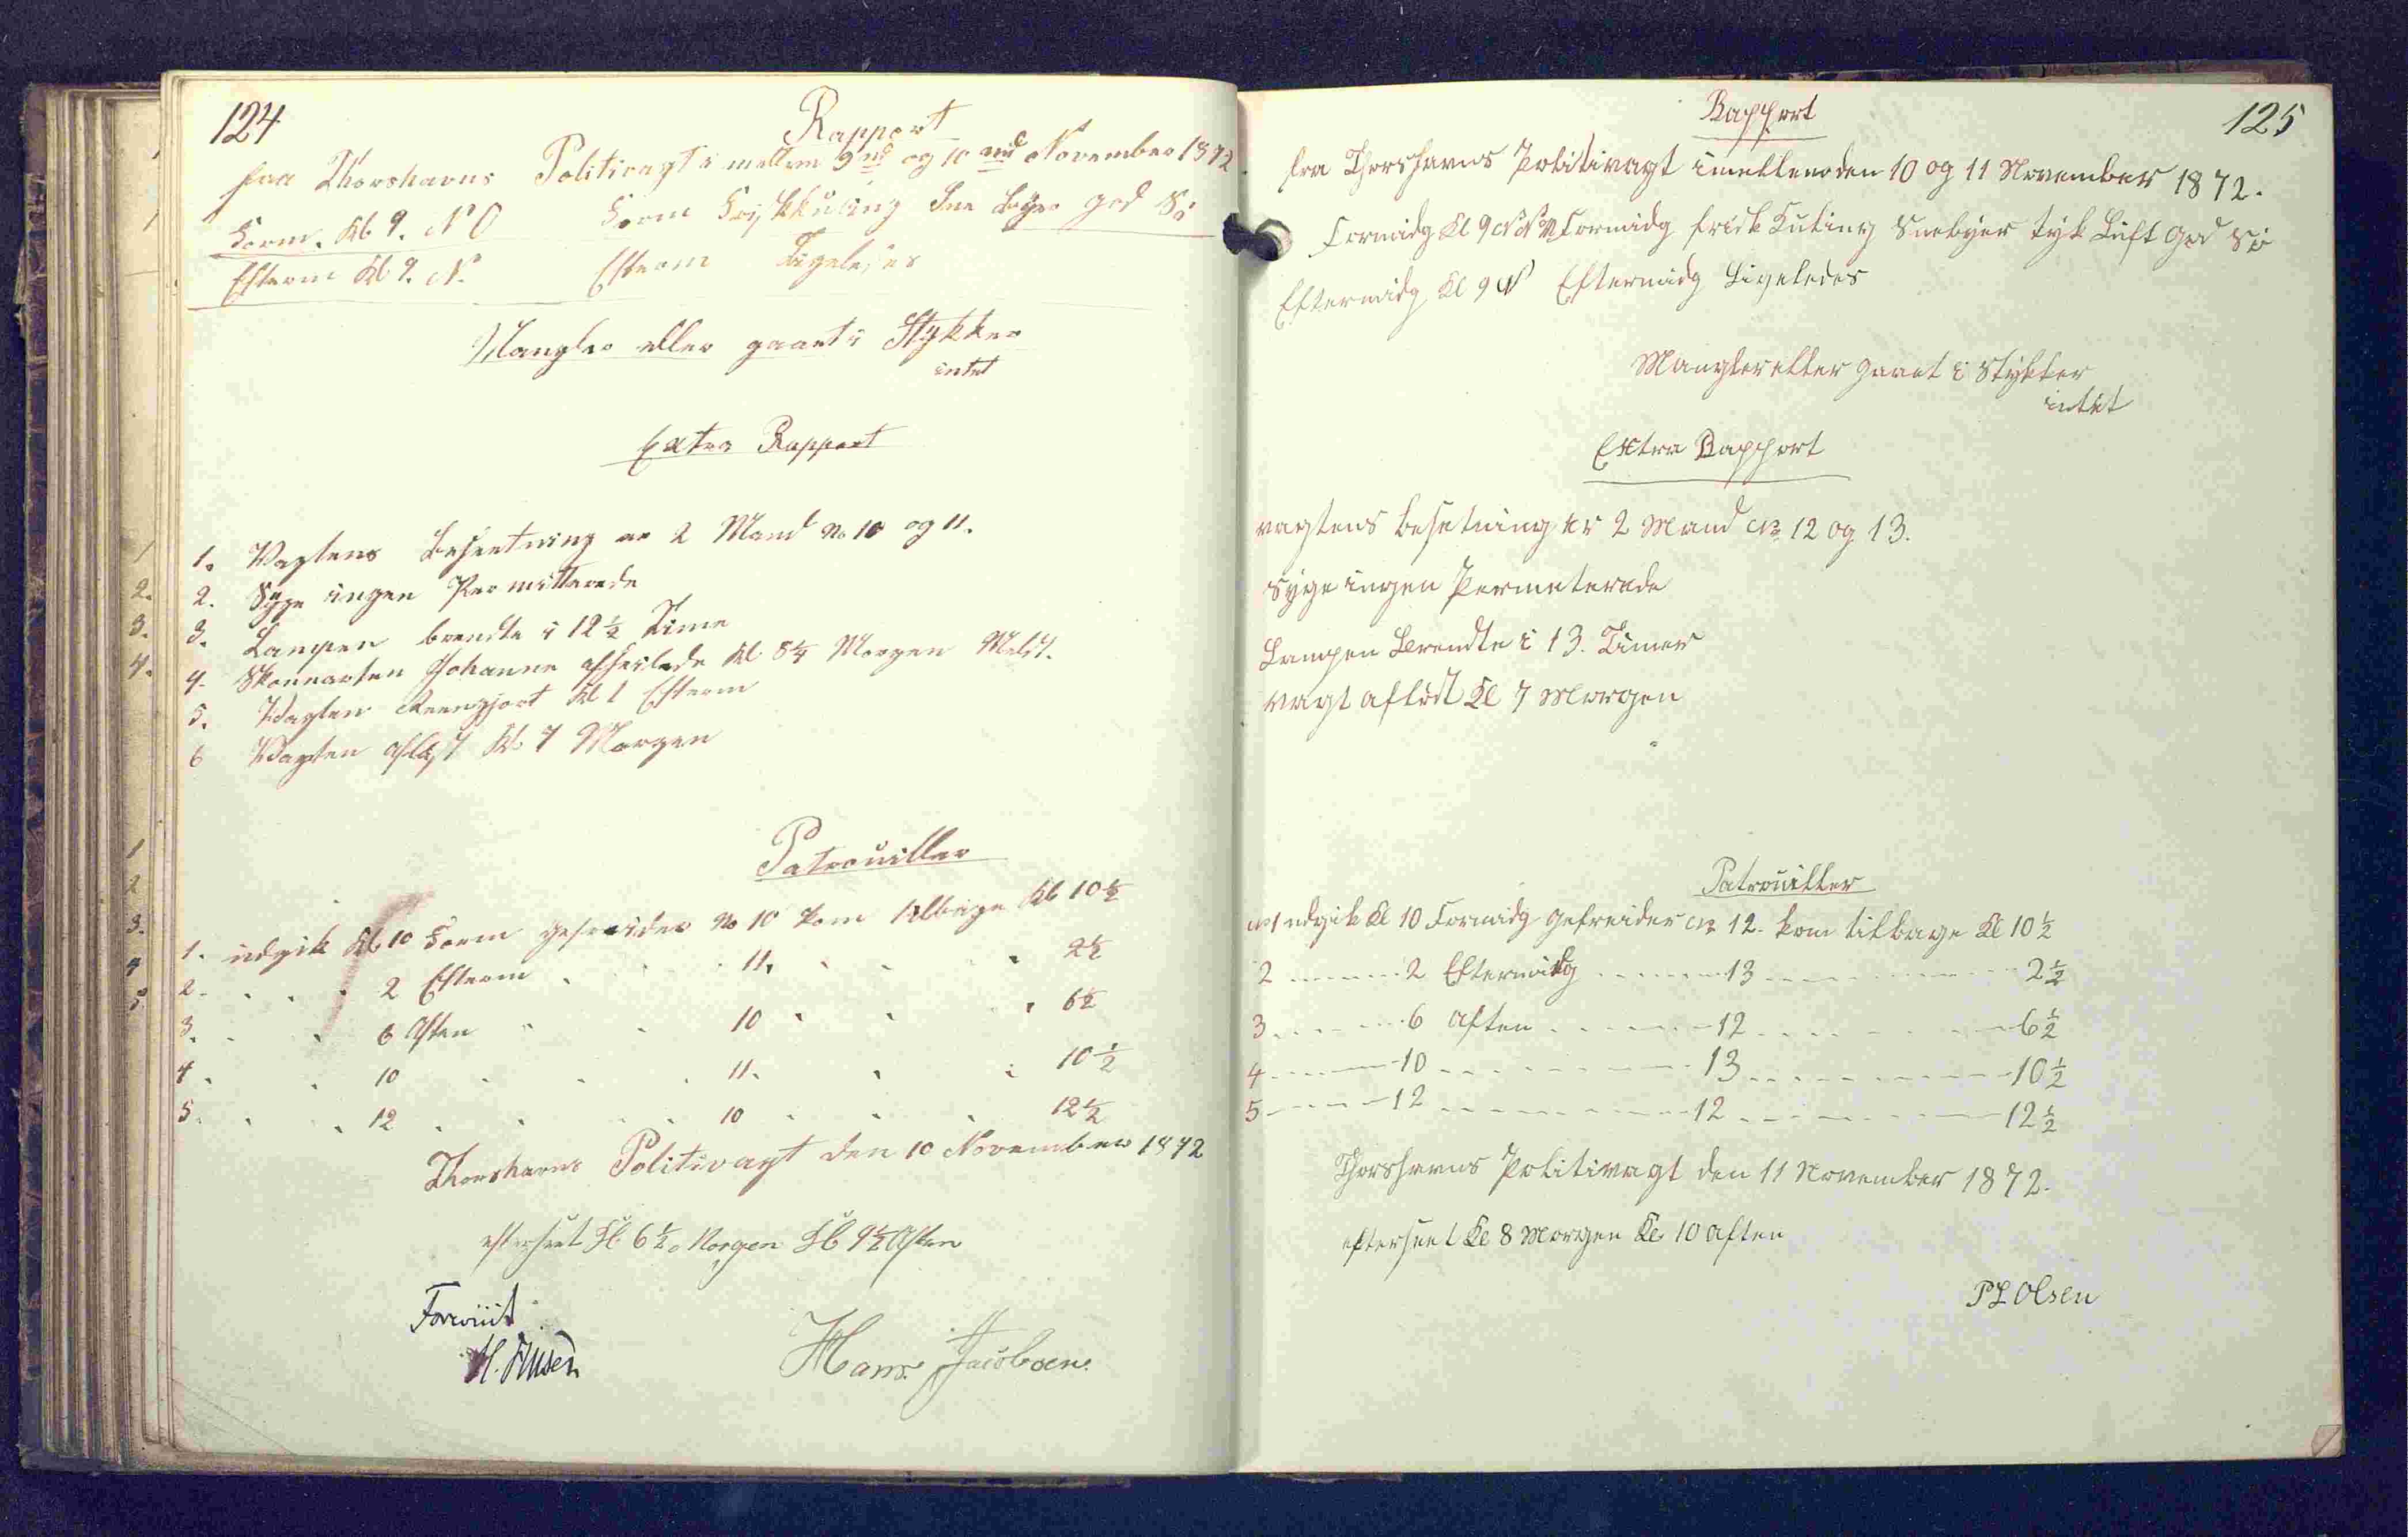 124
Rapport
fra Thorshavns Politivagt i mellem 9nd og 10nd November 1872
Form. Kl 9. N O Form Friskkuling Snee Byer god Sö
Efterm Kl 9. N. Efterm Ligeledes
Mangler eller gaaet i Stykker
intet
Extra Rapport
1. Vagtens Besætning er 2 Mand No 10 og 11.
2. Syge ingen Permitterede
3. Lampen brendte i 12½ Time
4. Skonnarten Johanne afseilede Kl 8¼ Morgen
5. Vagten Reengjort Kl 1 Efterm
6 Vagten afløst Kl 7 Morgen
Patrouiller
1. udgik Kl 10 Form gefreider No 10 kom tilbage Kl 10½
2. . . . 2 Efterm . . . 11. . . . 2½
3. . . 6 Aften . . 10 . . . 6½
4 . . 10 . . . 11. . . 10½
5. . . 12 . . . . 10 . . . 12½
Thorshavns Politivagt den 10 November 1872
efterseet Kl. 6½ Morgen Kl 9½ Aften
Foreviist
Hans Jacobsen.
125
Rapport
fra Thorshavns Politivagt imellem den 10 og 11 November 1872.
Formidg Kl 9 NNV Formidg frisk Kuling Sneebyer tyk Luft God Sö
Eftermidg Kl 9 N Eftermidg Ligeledes
Mangler eller gaaet i Stykker
intet
Extra Rapport
vagtens besetning er 2 Mand No 12 og 13.
syge ingen Permeterede
Lampen Brendte i 13. Timer
vagt aflöst Kl 7 Morgen
Patrouiller
No 1 udgik Kl 10 Formidg Gefreider No 12. kom tilbage Kl 10½
2 ------- 2 Eftermidg ------- 13 ------- 2½
3 ------- 6 Aften ------- 12 ------- 6½
4 ------- 10 ------- 13 ------- 10½
5 ------- 12 ------- 12 ------- 12½
Thorshavns Politivagt den 11 November 1872.
efterseet Kl 8 Morgen Kl. 10 Aften
P L Olsen